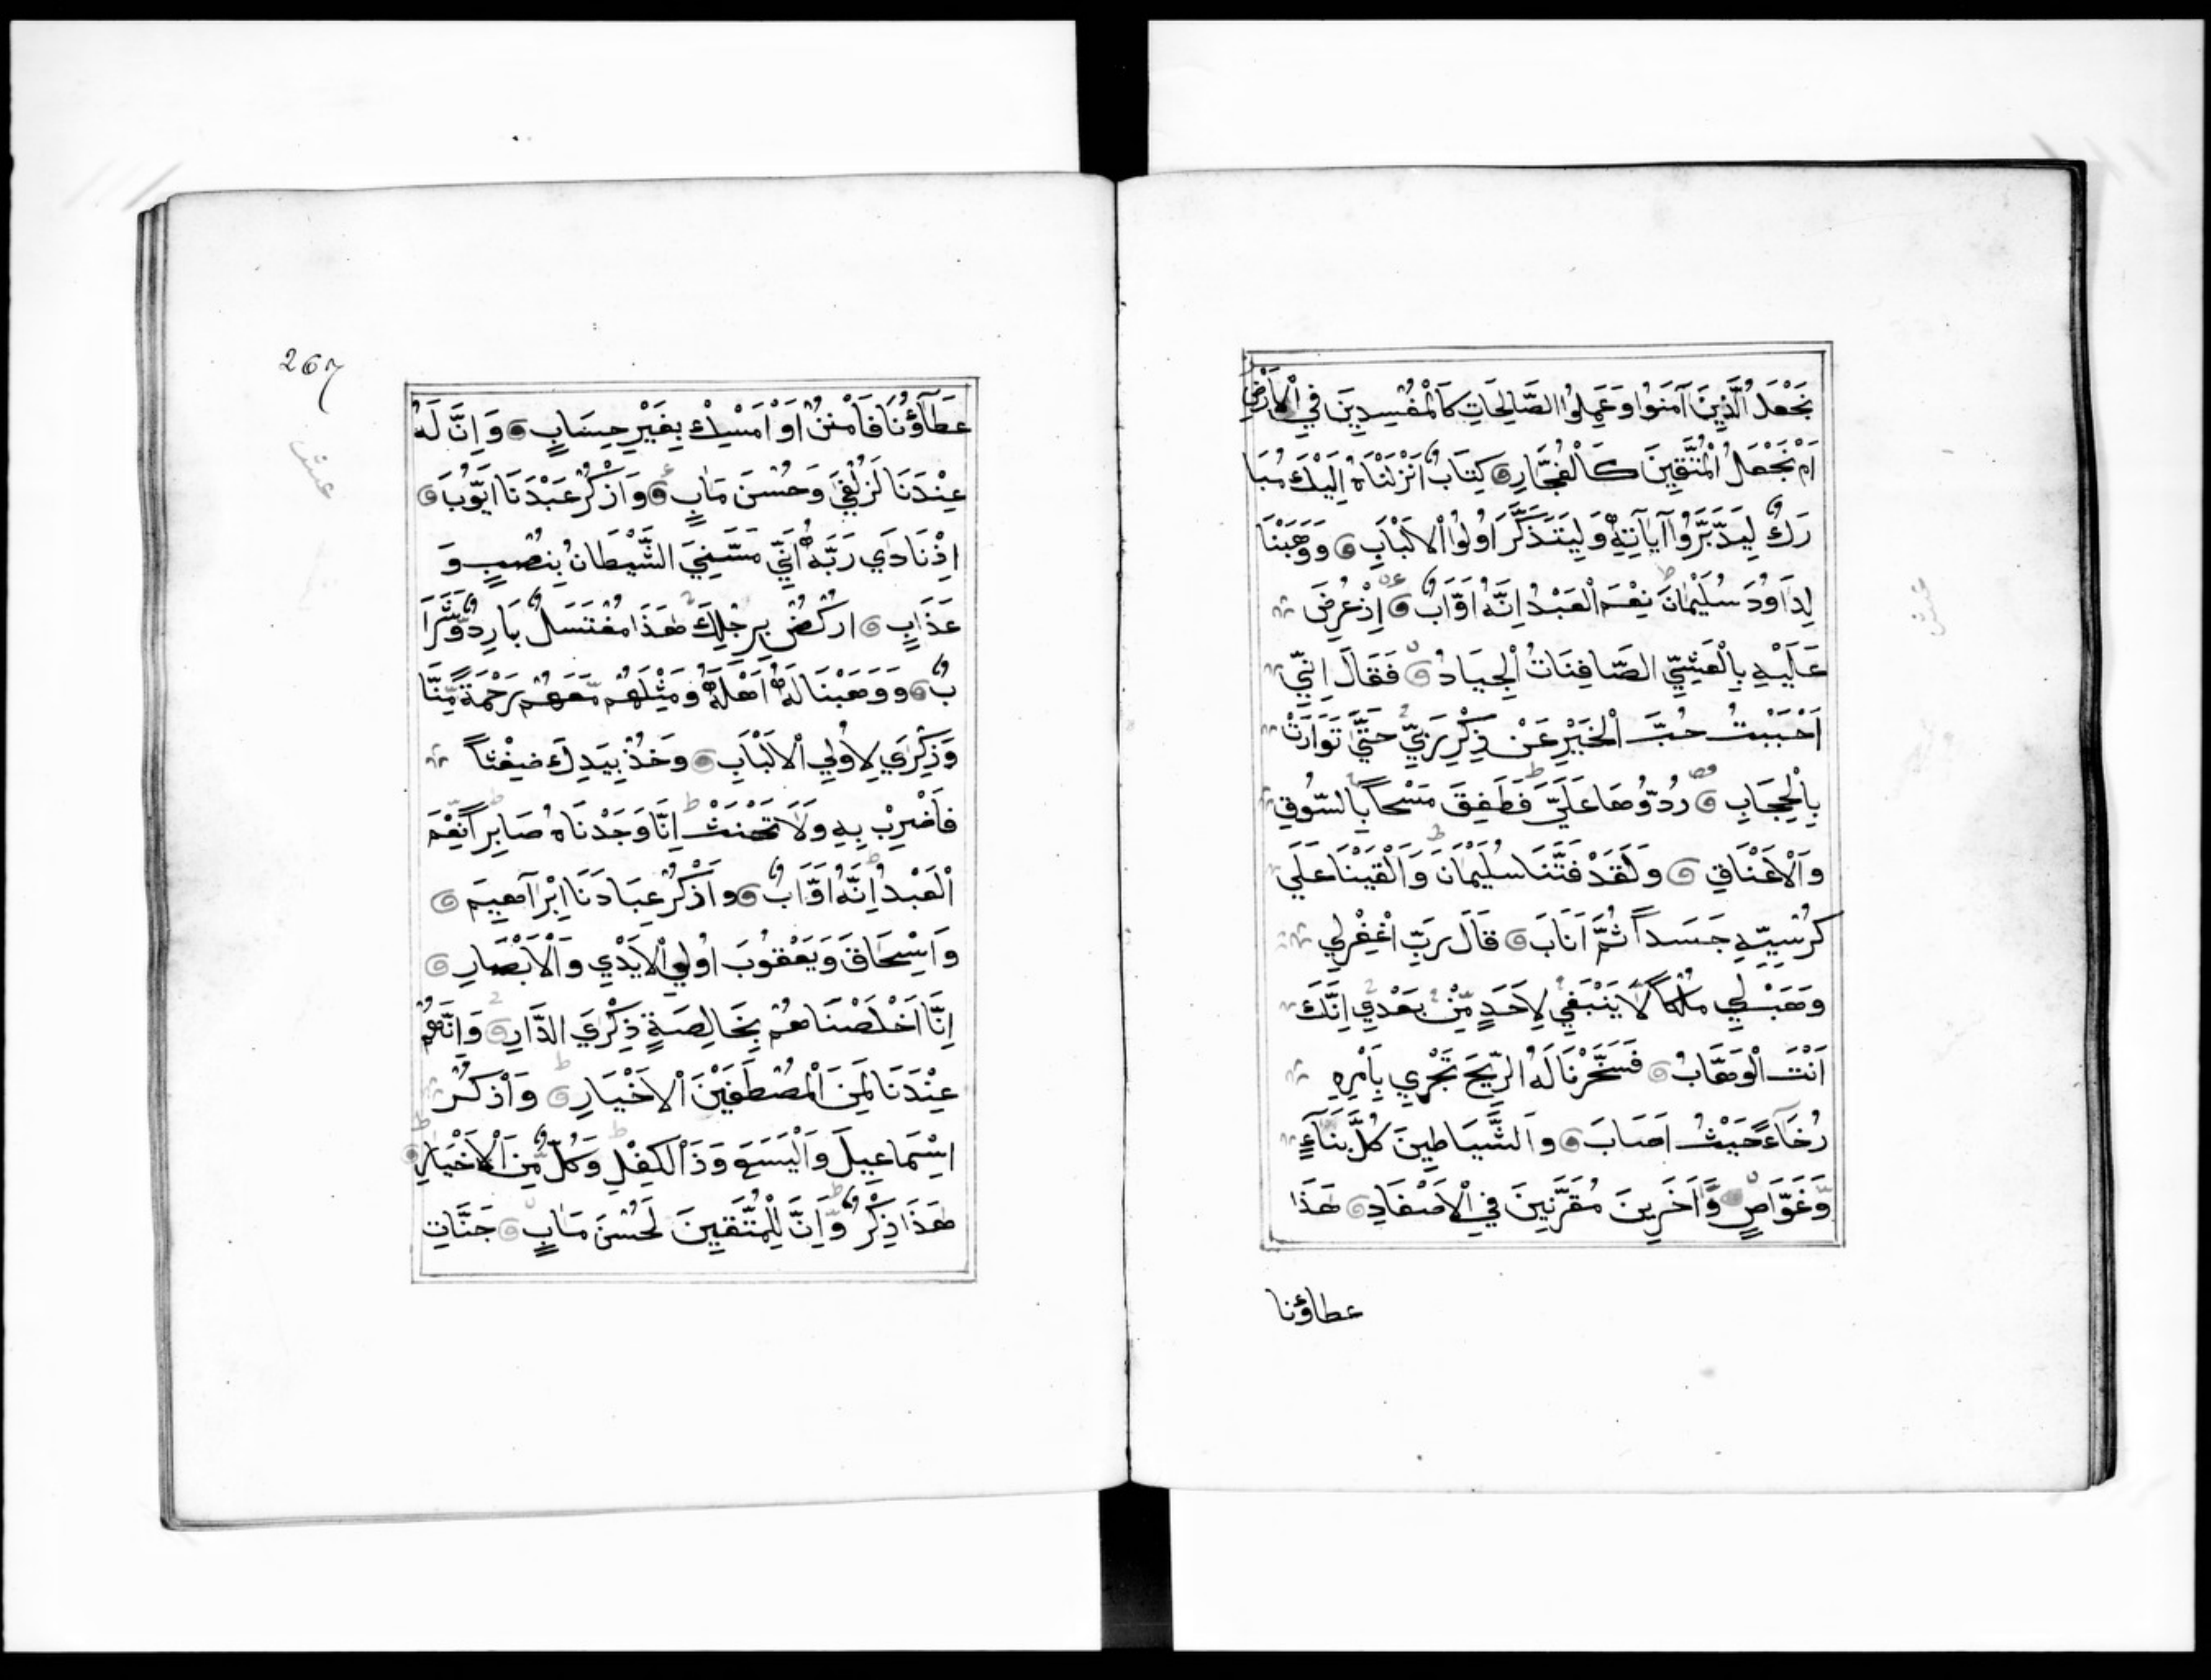 نَجْعَلُ الَّذِينَ آمَنُوا وَعَمِلُوا الصَّالِحَاتِ كَالْمُفْسِدِينَ فِي الْاَرْضِ
اَمْ نَجْعَلُ الْمُتَّقِينَ كَالْفُجَّارِ كِتَابٌ اَنْزَلْنَاهُ اِلَيْكَ مُبَا
رَكٌ لِيَدَّبَّرُوا آيَاتِهٖ وَلِيَتَذَكَّرَ اُولُوا الْاَلْبَابِ وَوَهَبْنَا
لِدَاوُدَ سُلَيْمَانَ نِعْمَ الْعَبْدُ اِنَّهُ اَوَّابٌ اِذْ عُرِضَ
عَلَيْهِ بِالْعَشِيِّ الصَّافِنَاتُ الْجِيَادُ فَقَالَ اِنِّي
اَحْبَبْتُ حُبَّ الْخَيْرِ عَنْ ذِكْرِ رَبِّي حَتَّى تَوَارَتْ
بِالْحِجَابِ رُدُّوهَا عَلَيَّ فَطَفِقَ مَسْحاً بِالسُّوقِ
وَالْاَعْنَاقِ وَلَقَدْ فَتَنَّا سُلَيْمَانَ وَاَلْقَيْنَا عَلَى
كُرْسِيِّهِ جَسَداً ثُمَّ اَنَابَ قَالَ رَبِّ اغْفِرْلِي
وَهَبْ لِي مُلْكاً لَا يَنْبَغِي لِاَحَدٍ مِّنْ بَعْدِي اِنَّكَ
اَنْتَ الْوَهَّابُ فَسَخَّرْنَا لَهُ الرِّيحَ تَجْرِي بِاَمْرِهِ
رُخَاءً حَيْثُ اَصَابَ وَالشَّيَاطِينَ كُلَّ بَنَّاءٍ
وَّغَوَّاصٍ وَّاَخَرِينَ مُقَرَّنِينَ فِي الْاَصْفَادِ هَذَا
عطاؤنا
267
عَطَآؤُنَا فَامْنُنْ اَوْ اَمْسِكْ بِغَيْرِ حِسَابٍ وَاِنَّ لَهُ
عِنْدَنَا لَزُلْفَى وَحُسْنَ مَاٰبٍ وَاذْكُرْ عَبْدَنَا اَيُّوبَ
اِذْ نَادَى رَبَّهُ اَنِّي مَسَّنِيَ الشَّيْطَانُ بِنُصْبٍ وَ
عَذَابٍ ارْكُضْ بِرِجْلِكَ هَذَا مُغْتَسَلٌ بَارِدٌ وَّشَرَا
بٌ وَوَهَبْنَا لَهُ اَهْلَهُ وَمِثْلَهُمْ مَّعَهُمْ رَحْمَةً مِّنَّا
وَذِكْرَى لِاُولِي الْاَلْبَابِ وَخُذْ بِيَدِكَ ضِغْثاً
فَاضْرِبْ بِهِ وَلَا تَحْنَثْ اِنَّا وَجَدْنَاهُ صَابِراً نِّعْمَ
الْعَبْدُ اِنَّهُ اَوَّابٌ وَاذْكُرْ عِبَادَنَا اِبْرَاهِيمَ
وَاِسْحَاقَ وَيَعْقُوبَ اُولِي الْاَيْدِي وَالْاَبْصَارِ
اِنَّا اَخْلَصْنَاهُمْ بِخَالِصَةٍ ذِكْرَى الدَّارِ وَاِنَّهُمْ
عِنْدَنَا لَمِنَ الْمُصْطَفَيْنَ الْاَخْيَارِ وَاذْكُرْ
اِسْمَاعِيلَ وَالْيَسَعَ وَذَا الْكِفْلِ وَكُلٌّ مِّنَ الْاَخْيَارِ
هَذَا ذِكْرٌ وَّاِنَّ لِلْمُتَّقِينَ لَحُسْنَ مَاٰبٍ جَنَّاتِ